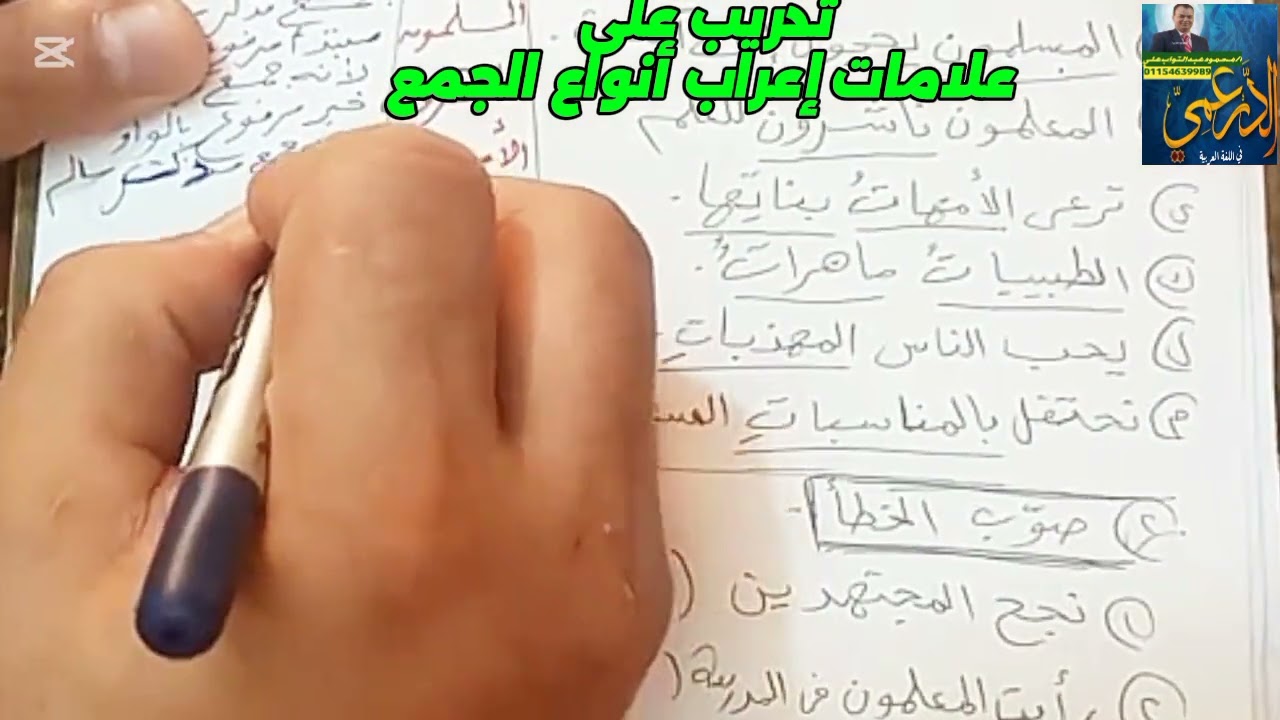 تدريب على
علامات إعراب أنواع الجمع
أ/محمود عبدالتواب على
01154639989
الدرعمي
في اللغة العربية
المسلمون
مبتدأ مرفوع
لأنه جمع
خبر مرفوع بالواو
جمع مذكر سالم
المسلمون يحجون
المعلمون ناشرون للعلم
ترعى الأمهاتُ بناتِها.
الطبيبات ماهرات.
يحب الناس المهذباتِ
نحتفل بالمناسباتِ
٢ صوّب الخطأ
١ نجح المجتهدين (
٢ رأيت المعلمون فى المدرسة (